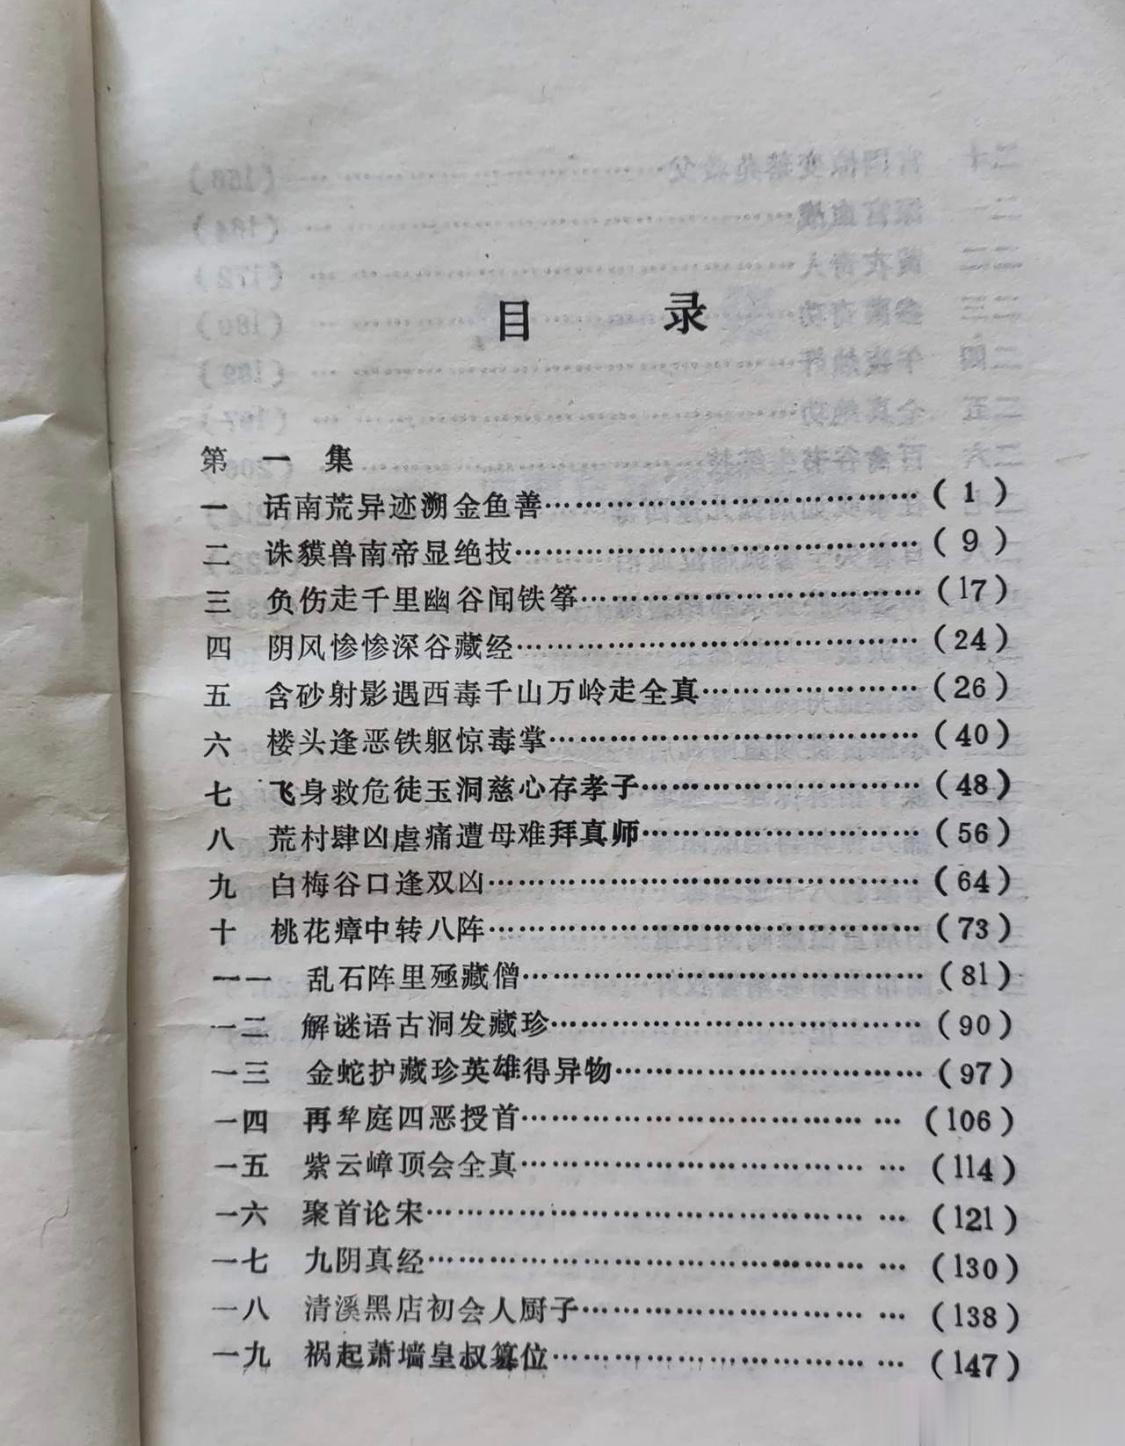 目 录
第一集
一 话南荒异迹溯金鱼善……………………………(1)
二 诛貘兽南帝显绝技………………………………(9)
三 负伤走千里幽谷闻铁筝…………………………(17)
四 阴风惨惨深谷藏经………………………………(24)
五 含砂射影遇西毒千山万岭走全真………………(26)
六 楼头逢恶铁躯惊毒掌……………………………(40)
七 飞身救危徒玉洞慈心存孝子……………………(48)
八 荒村肆凶虐痛遭母难拜真师……………………(56)
九 白梅谷口逢双凶…………………………………(64)
十 桃花瘴中转八阵…………………………………(73)
一一 乱石阵里殛藏僧………………………………(81)
一二 解谜语古洞发藏珍……………………………(90)
一三 金蛇护藏珍英雄得异物………………………(97)
一四 再犂庭四恶授首……………………………… …(106)
一五 紫云嶂顶会全真……………………………… …(114)
一六 聚首论宋……………………………………… …(121)
一七 九阴真经……………………………………… …(130)
一八 清溪黑店初会人厨子………………………… …(138)
一九 祸起萧墙皇叔篡位…………………………… …(147)